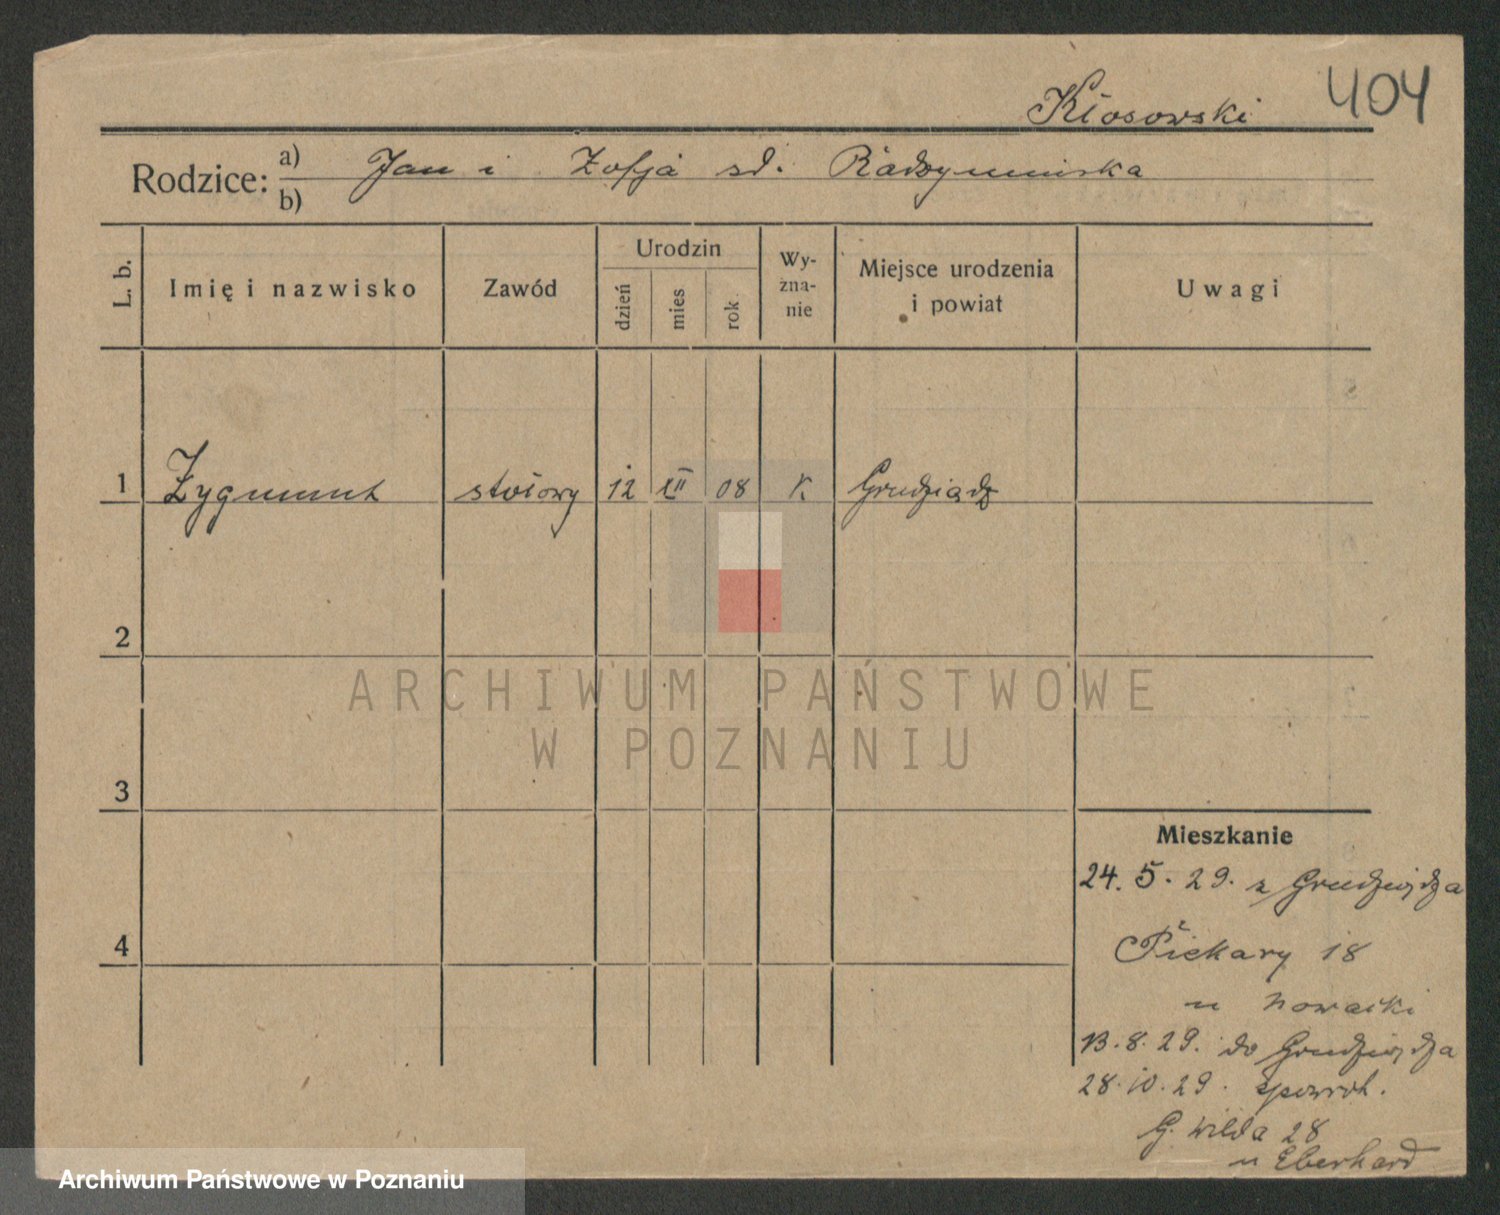 404
Kłosowski
Rodzice: a) b) Jan i Zofja sd. Radzymińska
L. b. Imię i nazwisko Zawód Urodzin dzień mies rok Wy-zna-nie Miejsce urodzenia i powiat Uwagi
1 Zygmunt stołowy 12 XII 08 K Grudziądz
2
ARCHIWUM PAŃSTWOWE
W POZNANIU
3
Mieszkanie
24. 5. 29. z Grudziądza
4
Piekary 18
u Nowacki
13. 8. 29. do Grudziądza
28. 10. 29. zpowrot.
G. Wilda 28
u Eberhard
Archiwum Państwowe w Poznaniu